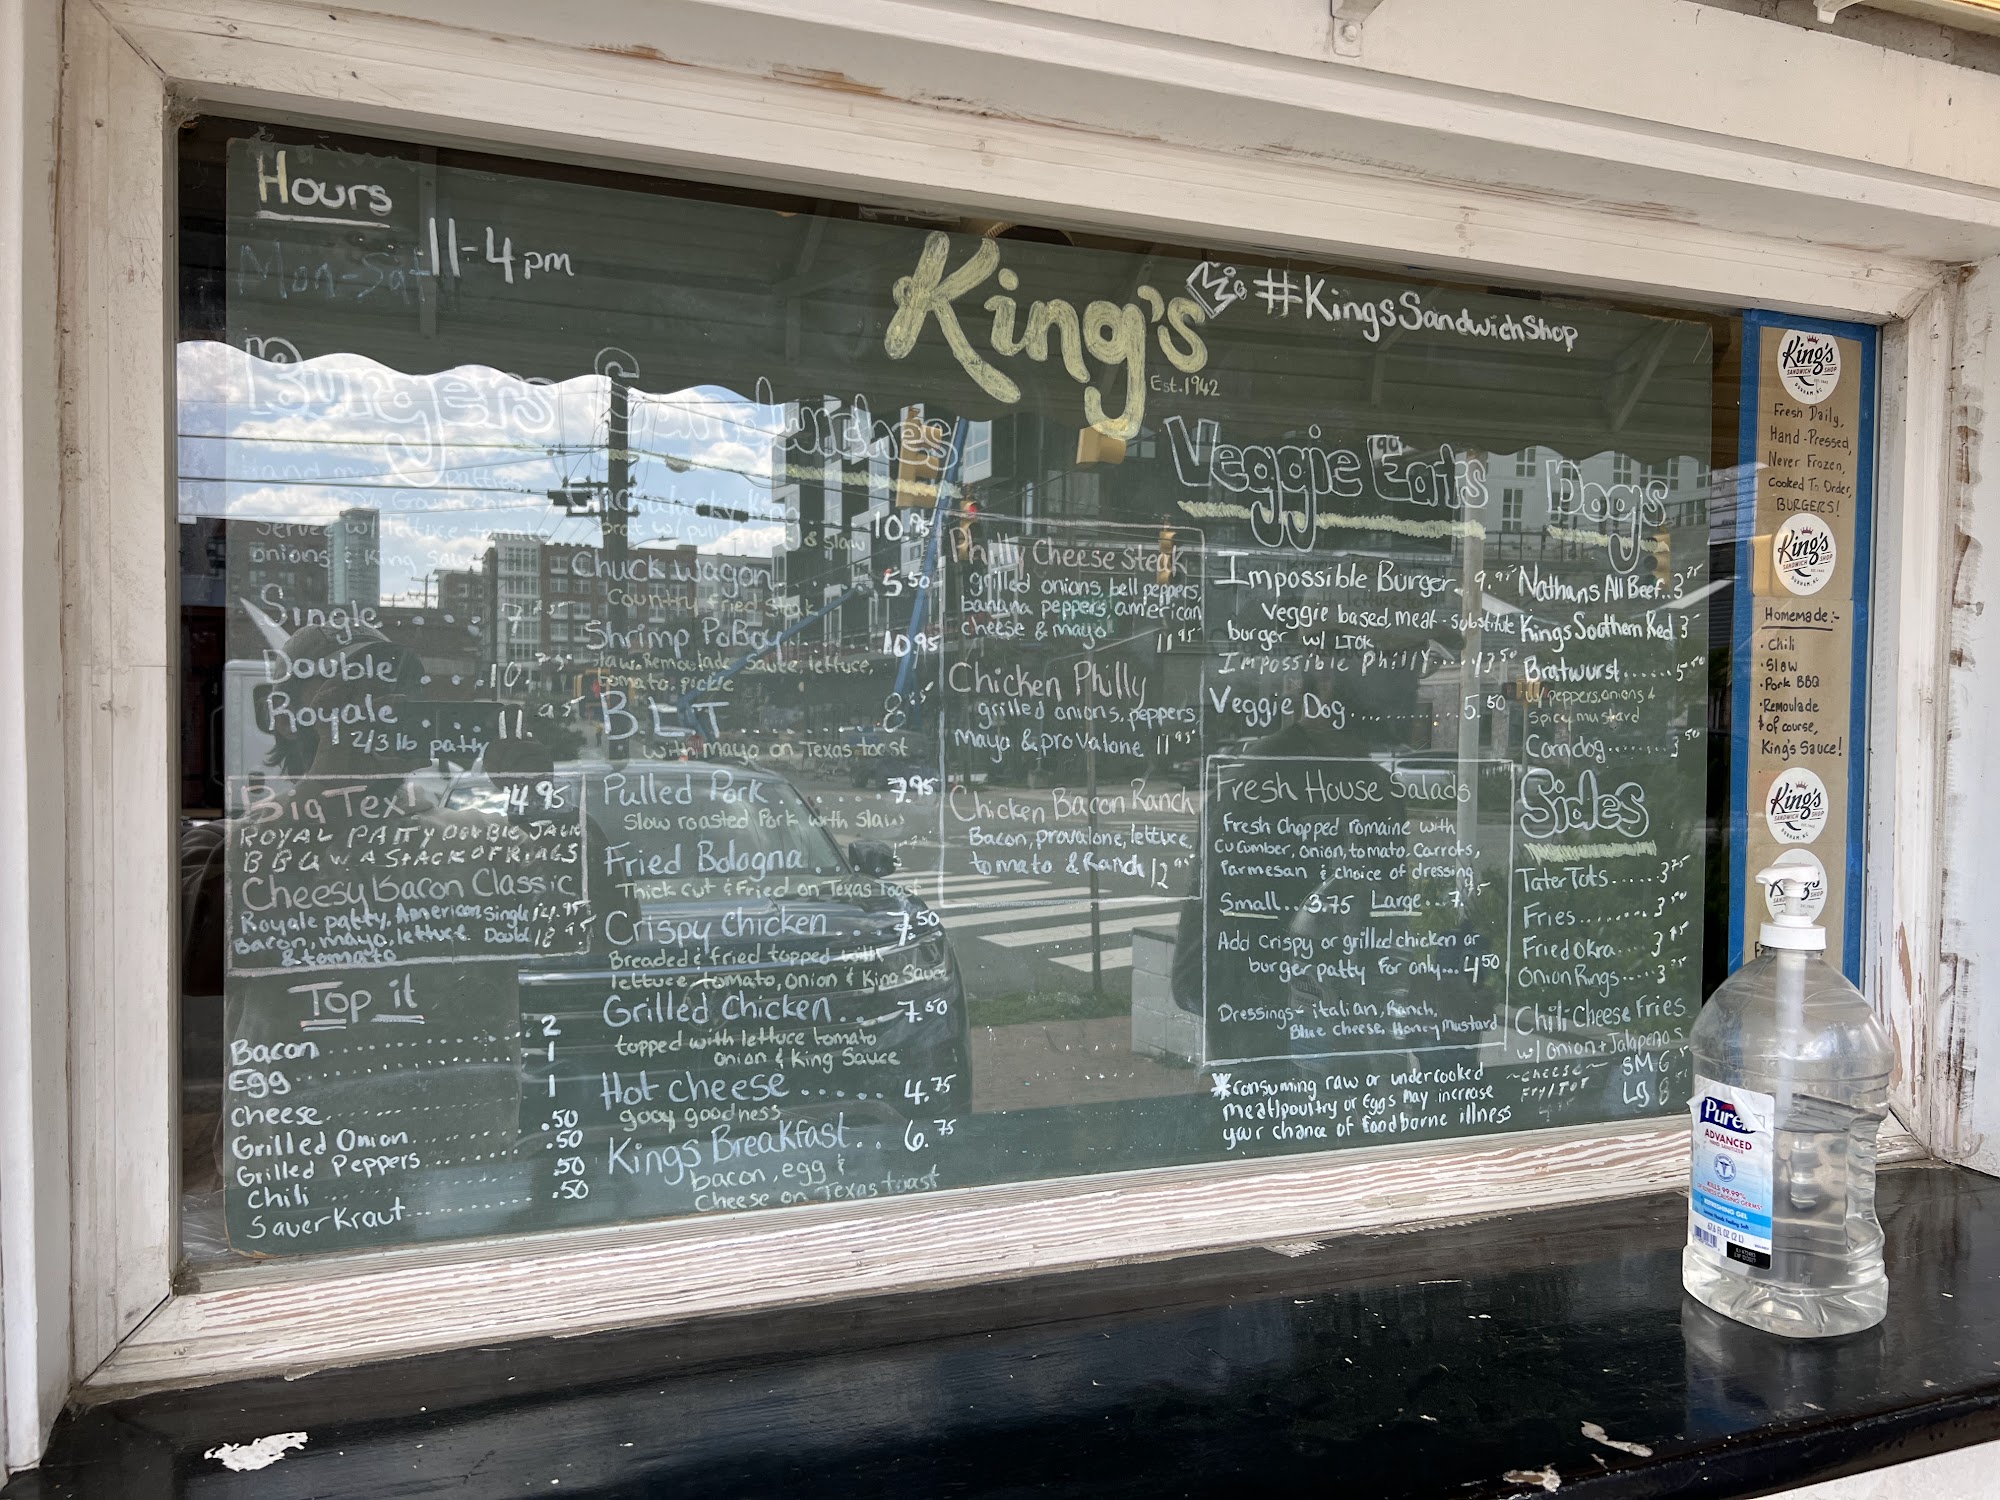 Hours
Mon-Sat 11-4pm
King's
Est.1942
#KingsSandwichShop
Burgers
Hand patties
Ground Chuck
Served w/ lettuce tomato
onions & King Sauce
Single
Double . . . 10.
Royale . . . 11.95
2/3 lb patty
Big Tex! 14.95
ROYAL PATTY DOUBLE JACK
BBQ W A STACK OF RINGS
Cheesy Bacon Classic
Royale patty, American Single 14.95
Bacon, mayo, lettuce Doubl 18.95
& tomato
Top it
Bacon . . 2
Egg . . 1
cheese . . 1
Grilled Onion . . .50
Grilled Peppers . . .50
Chili . . .50
SauerKraut . . .50
Sandwiches
brat w/ pulled pork & slaw 10.95
Chuck wagon . . . 5.50
Country fried steak
Shrimp PoBoy 10.95
slaw, Remoulade Sauce, lettuce,
tomato, pickle
BLT . . . . . 8
with mayo on Texas toast
Pulled Pork . . . . . 7.95
Slow roasted Pork with slaw
Fried Bologna . .
Thick cut & Fried on Texas toast
Crispy Chicken . . 7.50
Breaded & fried topped with
lettuce, tomato, onion & King Sauce
Grilled Chicken . . 7.50
topped with lettuce tomato
onion & King Sauce
Hot cheese . . . . . 4.75
gooy goodness
Kings Breakfast . . 6.75
bacon, egg &
Cheese on Texas toast
Philly Cheese steak
grilled onions, bell peppers,
banana peppers, american
cheese & mayo 11.95
Chicken Philly
grilled onions, peppers,
mayo & provalone 11.95
Chicken Bacon Ranch
Bacon, provalone, lettuce,
tomato & Ranch 12.95
Veggie Eats
Impossible Burger 9.95
Veggie based, meat-substitute
burger w/ LTOK
Impossible Philly . . . . 13.50
Veggie Dog . . . . . . . 5.50
Fresh House Salads
Fresh Chopped romaine with
Cucumber, onion, tomato, Carrots,
Parmesan & choice of dressing
Small...3.75 Large...7.75
Add crispy or grilled chicken or
burger patty for only... 4.50
Dressings- italian, Ranch,
Blue cheese, Honey Mustard
*consuming raw or undercooked
meat/poultry or Eggs May increase
your chance of foodborne illness
Dogs
Nathans All Beef..3.75
Kings Southern Red.3
Bratwurst......5.50
w/ peppers, onions &
spicy mustard
Corndog.......3.50
Sides
TaterTots......3.75
Fries........3.50
Fried Okra...3.75
Onion Rings....3.75
Chili Cheese Fries
w/ onion + Jalapenos
~cheese~ SM 6
Fry/Tot LG 8
King's
SANDWICH SHOP
EST. 1942
DURHAM, NC
Fresh Daily,
Hand-Pressed,
Never Frozen,
Cooked To Order,
BURGERS!
King's
SANDWICH SHOP
EST. 1942
DURHAM, NC
Homemade:-
• Chili
• Slaw
• Pork BBQ
• Remoulade
& of course,
King's Sauce!
King's
SANDWICH SHOP
EST. 1942
DURHAM, NC
Purell
ADVANCED
HAND SANITIZER
KILLS 99.99%
REFRESHING GEL
67.6 FL OZ (2 L)